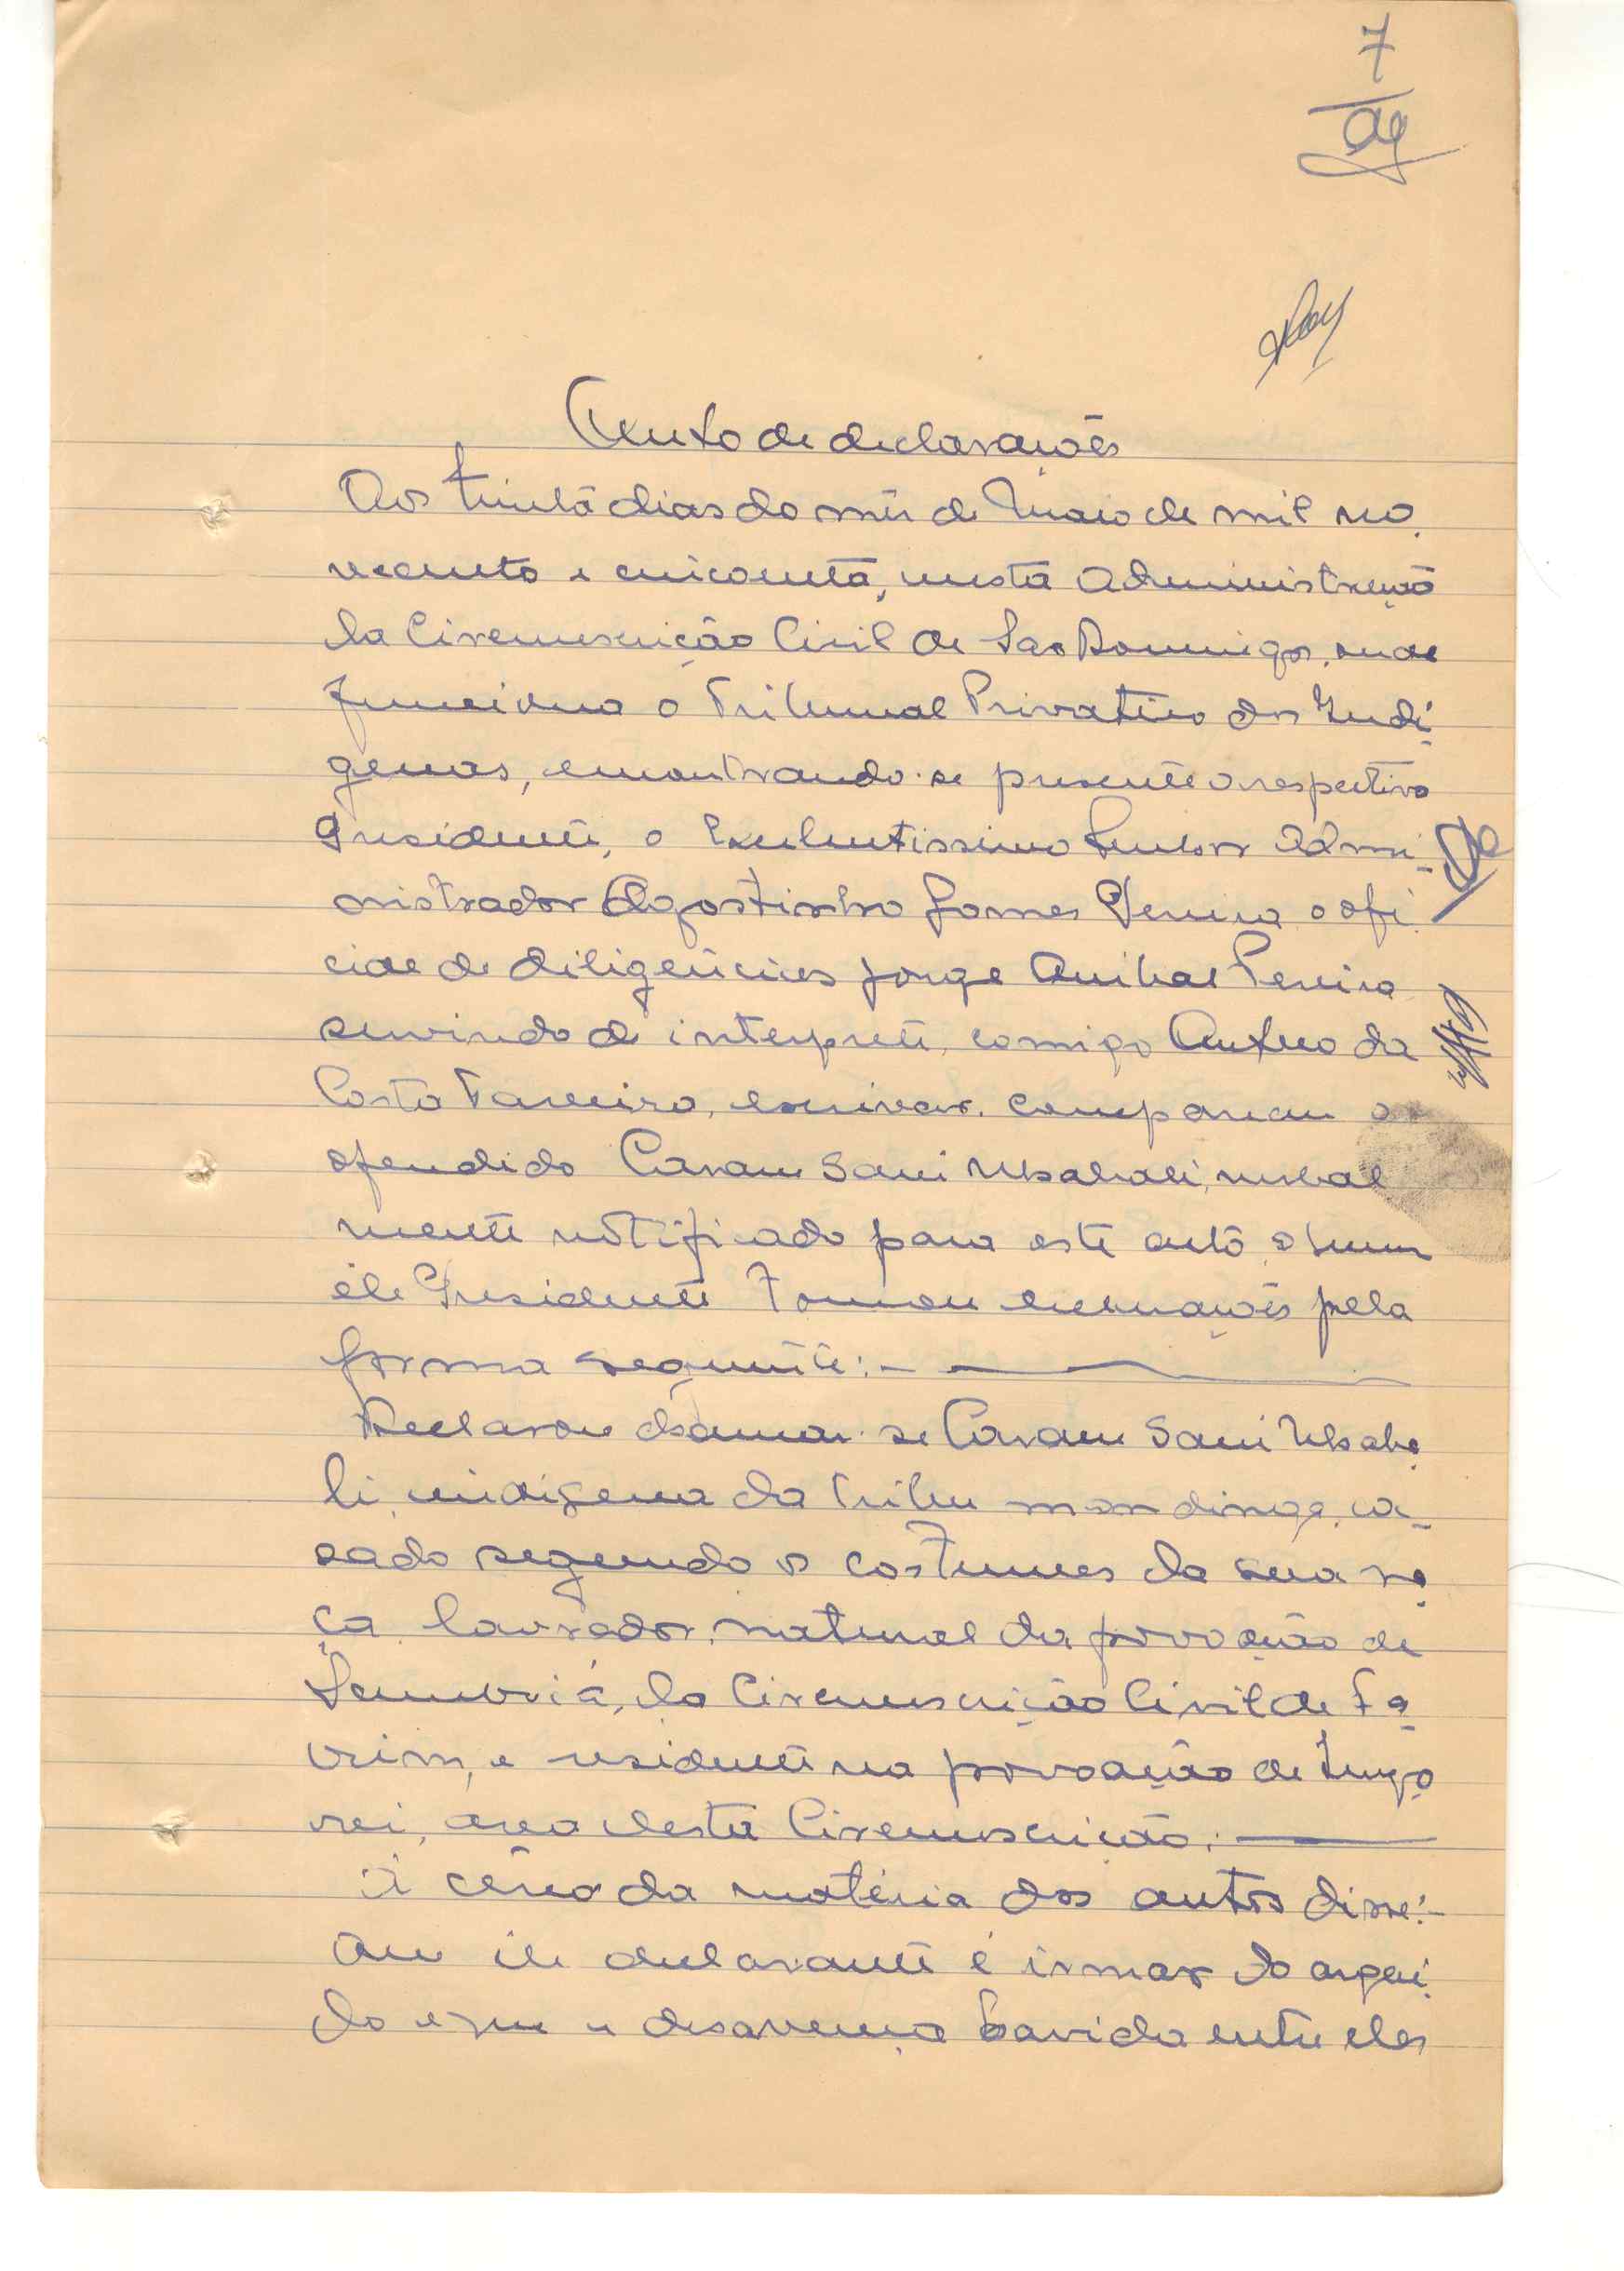 7
Auto de declarações
Aos trinta dias do mês de Maio de mil no-
vecento e cincoenta, nesta Administração
da Circunscrição Civil de São Domingos, onde
funciona o Tribunal Privativo dos Indí-
genas, encontrando-se presente o respectivo
Presidente, o Excelentissimo Senhor Admi-
nistrador Agostinho Gomes Pereira o ofi-
cial de diligências Jorge Anibal Pereira
servindo de interprete, comigo Antero da
Costa escrivão, compareceu o
ofendido Caram Sani verbal
mente notificado para este auto, a quem
êle Presidente tomou declarações pela
forma seguinte:-
Declarou chamar-se Caram Sani
li, indigena da tribu mandinga, ca-
sado segundo os costumes da sua ra-
ça, lavrador, natural da povoação de
da Circunscrição Civil de Fa-
rim, e residente na povoação de
rei, area desta Circunscrição.
À cêrca da matéria dos autos disse:-
Que êle declarante é irmão do argui-
do e que a desavença havida entre eles